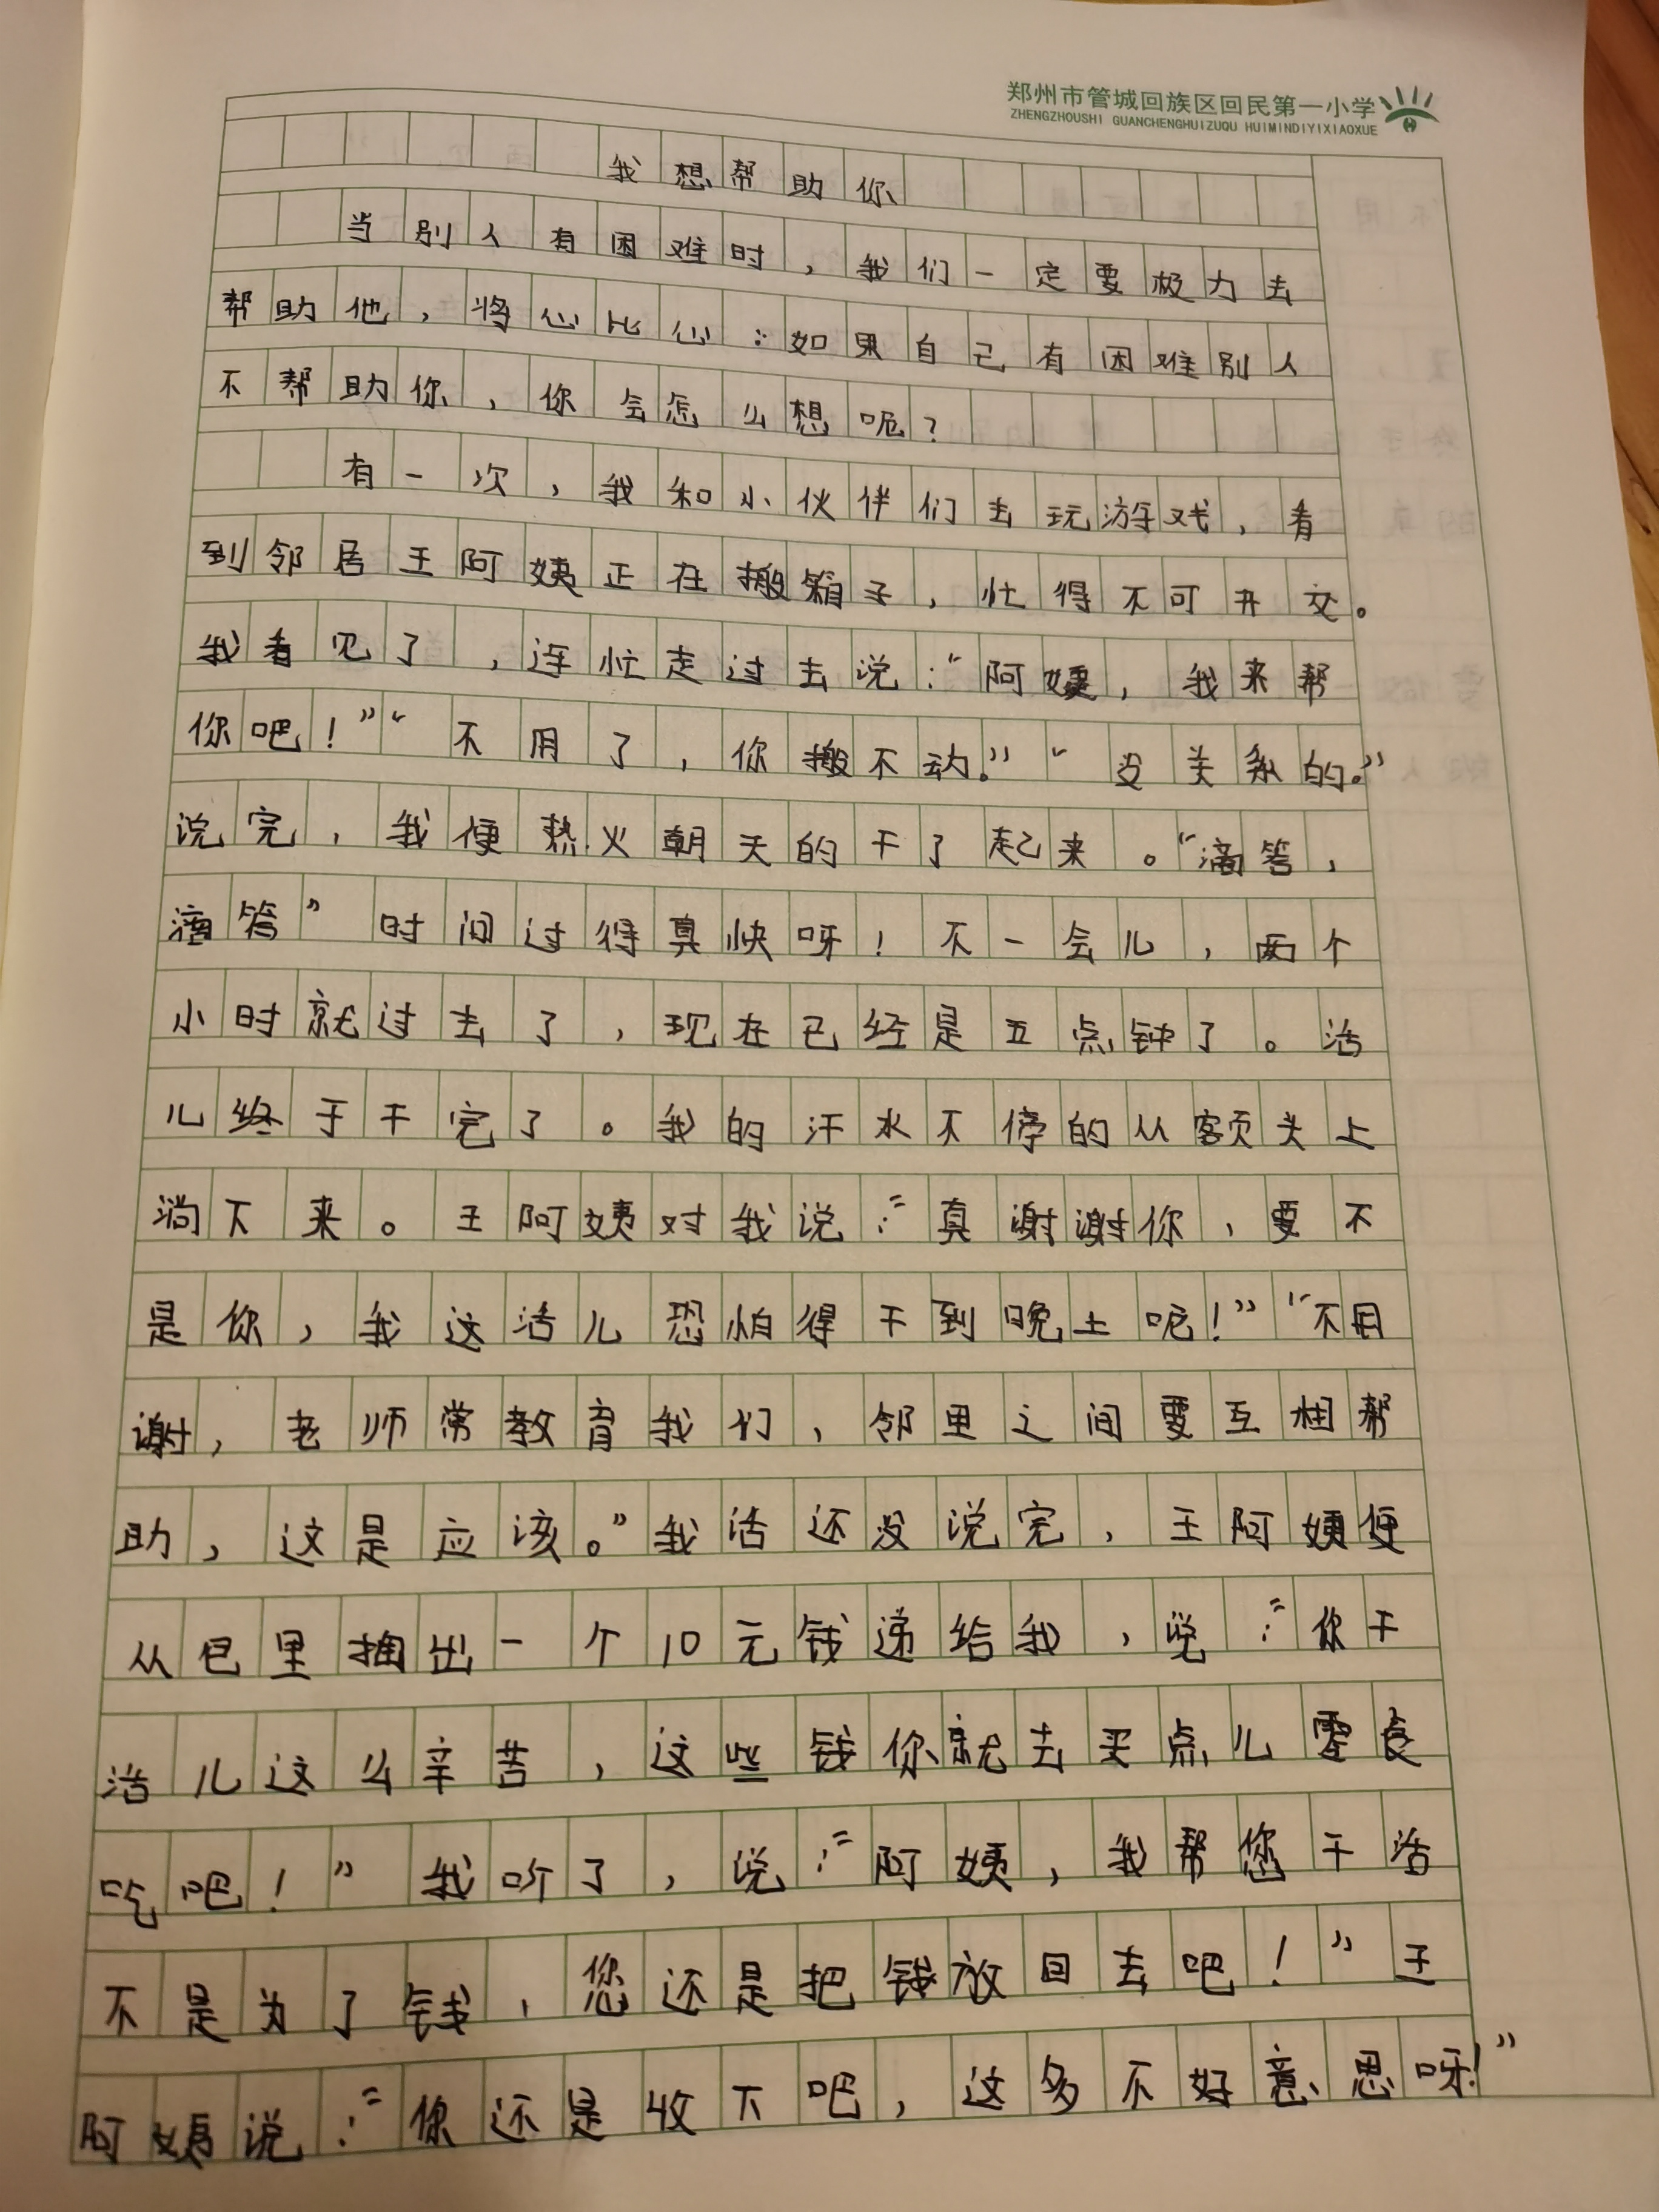 郑州市管城回族区回民第一小学
ZHENGZHOUSHI GUANCHENGHUIZUQU HUIMINDIYIXIAOXUE
我想帮助你
当别人有困难时，我们一定要极力去
帮助他，将心比心：如果自己有困难别人
不帮助你，你会怎么想呢？
有一次，我和小伙伴们去玩游戏，看
到邻居王阿姨正在搬箱子，忙得不可开交。
我看见了，连忙走过去说：“阿姨，我来帮
你吧！”“不用了，你搬不动。”“没关系的。”
说完，我便热火朝天的干了起来。“滴答，
滴答”时间过得真快呀！不一会儿，两个
小时就过去了，现在已经是五点钟了。活
儿终于干完了。我的汗水不停的从额头上
淌下来。王阿姨对我说：“真谢谢你，要不
是你，我这活儿恐怕得干到晚上呢！”“不用
谢，老师常教育我们，邻里之间要互相帮
助，这是应该。”我话还没说完，王阿姨便
从包里抽出一个10元钱递给我，说：“你干
活儿这么辛苦，这些钱你就去买点儿零食
吃吧！”我听了，说：“阿姨，我帮您干活
不是为了钱，您还是把钱放回去吧！”王
阿姨说：“你还是收下吧，这多不好意思呀！”